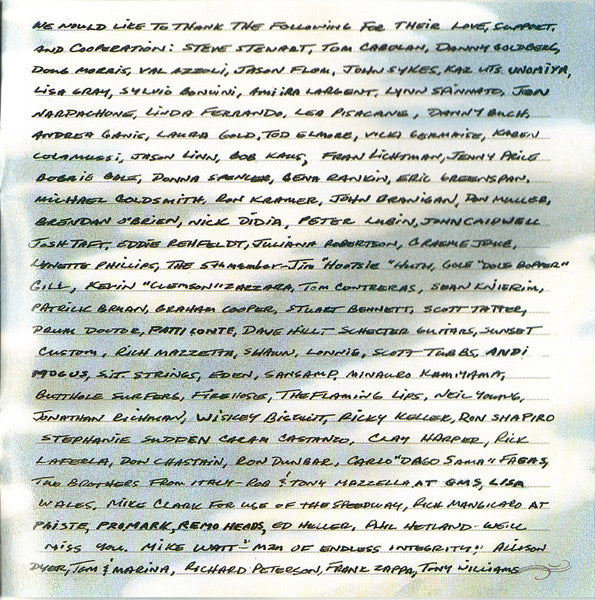 WE WOULD LIKE TO THANK THE FOLLOWING FOR THEIR LOVE, SUPPORT,
AND COOPERATION: STEVE STEWART, TOM CAROLAN, DANNY GOLDBERG,
DOUG MORRIS, VAL AZZOLI, JASON FLOM, JOHN SYKES, KAZ UTSUNOMIYA,
LISA GRAY, SYLVIO BONVINI, LARGENT, LYNN SPINNATO, JON
NARDACHONE, LINDA FERRANDO, LEA PISACANE, DANNY BUCH,
ANDREA GANIS, LAURA GOLD, TOD ELMORE, VICKI GERMAISE, KAREN
COLAMUSSI, JASON LINN, BOB KAUS, FRAN LICHTMAN, JENNY PRICE
BOBBIE GALE, DONNA SPENCER, GENA RANKIN, ERIC GREENSPAN,
MICHAEL GOLDSMITH, RON KRAMER, JOHN BRANIGAN, DON MULLER,
BRENDAN O'BRIEN, NICK DIDIA, PETER LUBIN, JOHN CAIDWELL
JOSH TAFT, EDDIE REHFELDT, JULIANA ROBERTSON, GRAEME JOYCE,
LYNETTE PHILLIPS, THE 5TH MEMBER-JIM "HOOTSIE" HUTH, COLE "DOLE BOPPER"
GILL, KEVIN "CLEMSON" ZAZZARA, TOM CONTRERAS, SEAN KNIERIM,
PATRICK BRYAN, GRAHAM COOPER, STUART BENNETT, SCOTT TATTER,
DRUM DOCTOR, PATTI CONTE, DAVE HILL- SCHECTER GUITARS, SUNSET
CUSTOM, RICH MAZZETTA, SHAWN, LONNIE, SCOTT TUBBS, ANDI
MOGUS, SIT STRINGS, EDEN, SANSAMP, MINAURO KAMIYAMA,
BUTTHOLE SURFERS, FIREHOSE, THE FLAMING LIPS, NEIL YOUNG,
JONATHAN RICHMAN, WISKEY BISCUIT, RICKY KELLER, RON SHAPIRO
STEPHANIE SUDDEN CARAM CASTANZO, CLAY HARPER, RICK
LAFERLA, DON CHASTAIN, RON DUNBAR, CARLO "DAGO SAMA" FAGAS,
TWO BROTHERS FROM ITALY-ROB & TONY MAZZELLA AT GMS, LISA
WALES, MIKE CLARK FOR USE OF THE SPEEDWAY, RICH MANGICARO AT
PAISTE, PROMARK, REMO HEADS, ED HELLER, PHIL HETLAND-WE'LL
MISS YOU. MIKE WATT-"MAN OF ENDLESS INTEGRITY." ALLISON
DYER, TOM & MARINA, RICHARD PETERSON, FRANK ZAPPA, TONY WILLIAMS